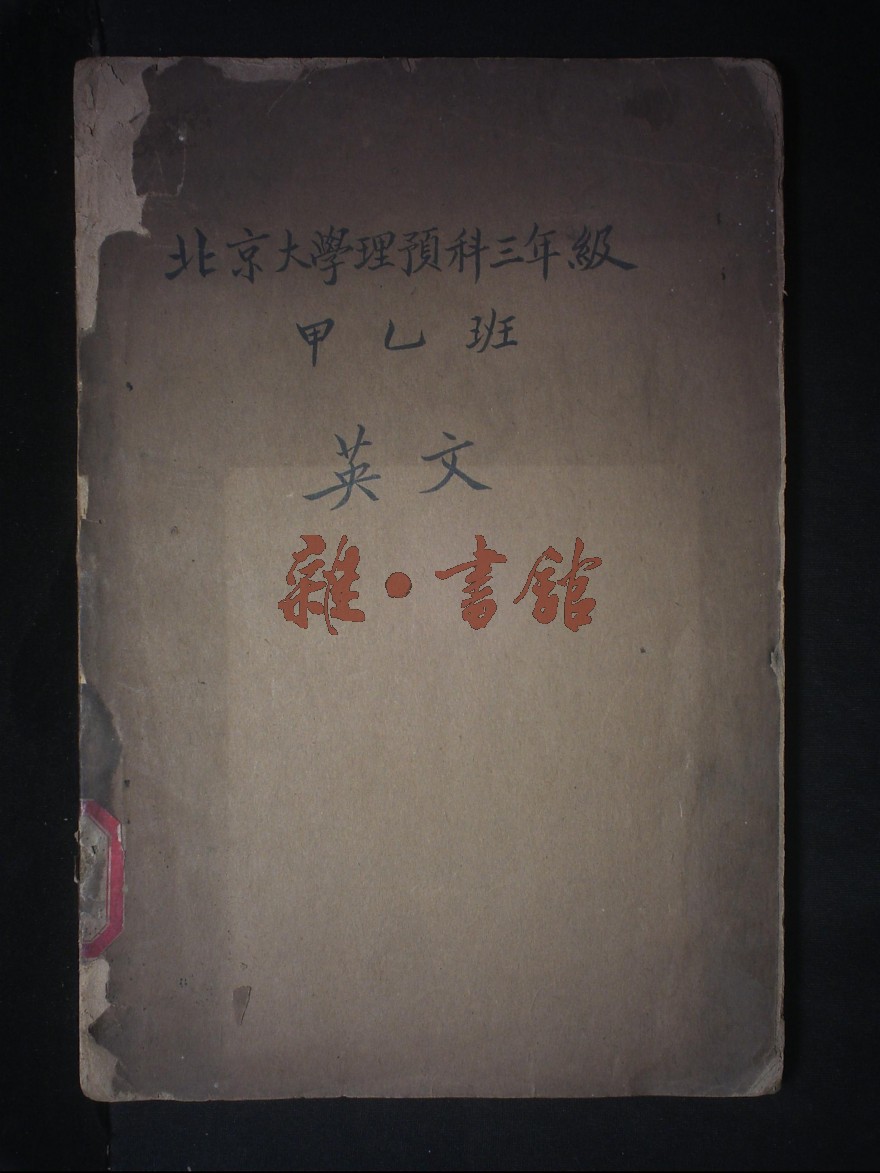 北京大學理預科三年級
甲乙班
英文
雜·書館